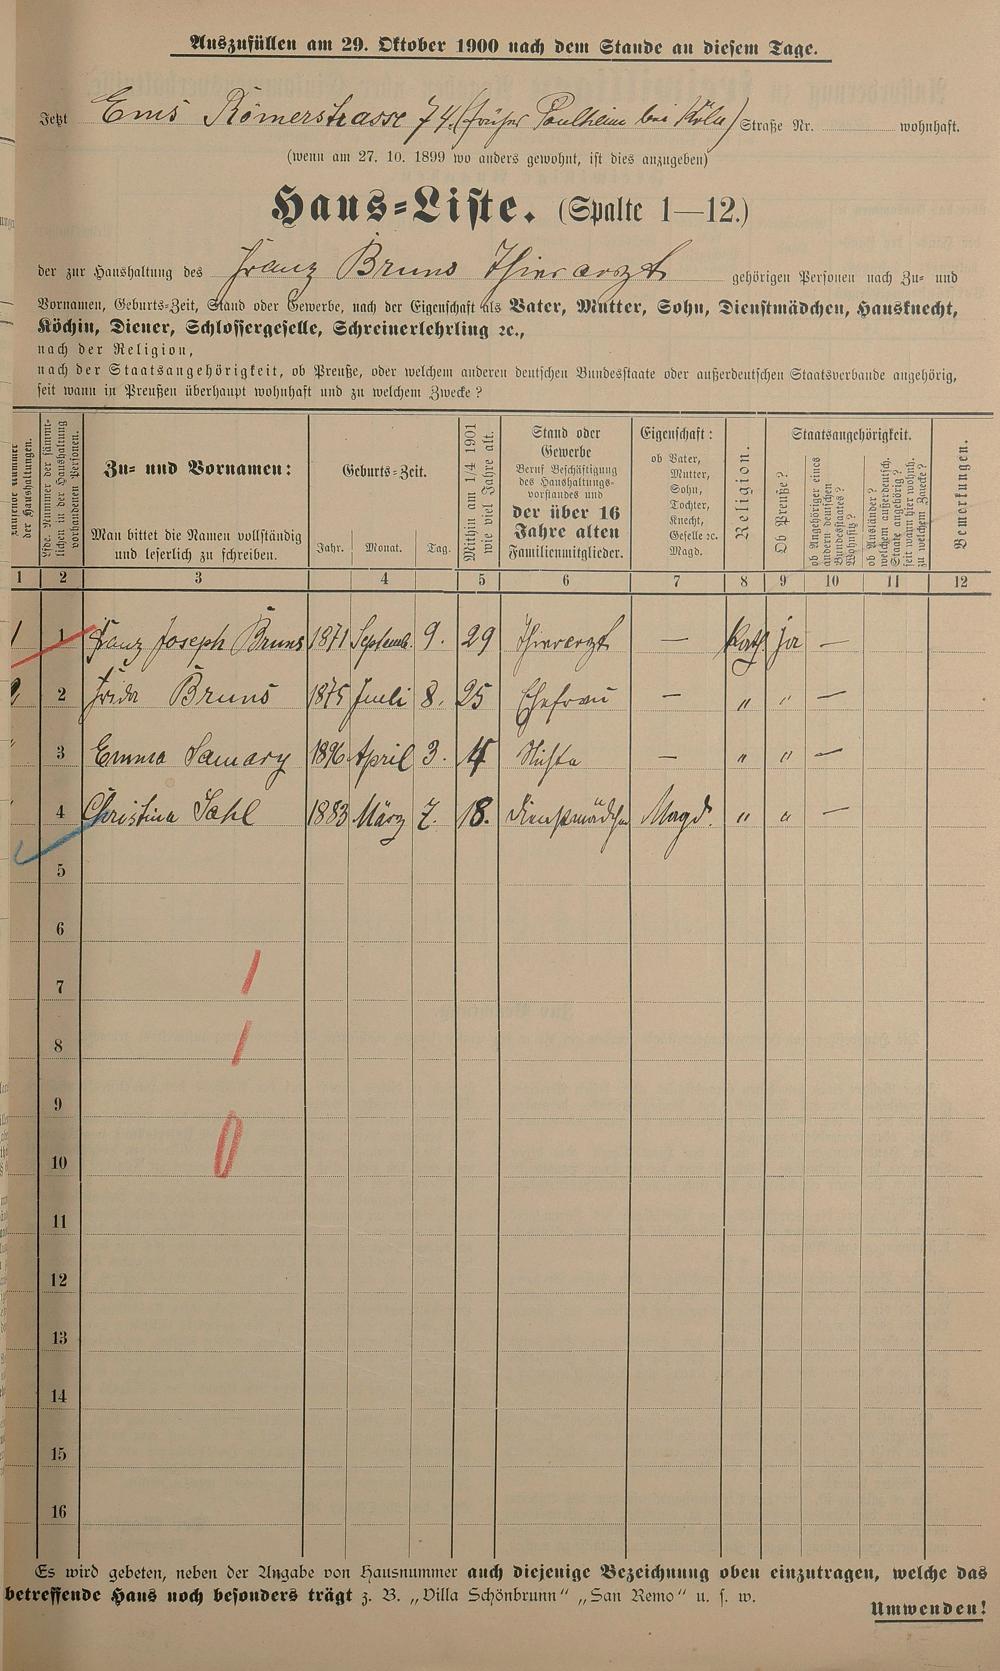 Auszufüllen am 29. Oktober 1900 nach dem Stande an diesem Tage.
Jetzt Ems Römerstrasse 74. (früher Poulheim bei Köln) Straße Nr. wohnhaft.
(wenn am 27. 10. 1899 wo anders gewohnt, ist dies anzugeben)
Haus-Liste. (Spalte 1—12.)
der zur Haushaltung des Franz Bruns Thierarzt gehörigen Personen nach Zu- und
Vornamen, Geburts-Zeit, Stand oder Gewerbe, nach der Eigenschaft als Vater, Mutter, Sohn, Dienstmädchen, Hausknecht,
Köchin, Diener, Schlossergeselle, Schreinerlehrling ꝛc.,
nach der Religion,
nach der Staatsangehörigkeit, ob Preuße, oder welchem anderen deutschen Bundesstaate oder außerdeutschen Staatsverbande angehörig,
seit wann in Preußen überhaupt wohnhaft und zu welchem Zwecke?
Nummer der Haushaltungen.
Lfde. Nummer der sämmtlichen in der Haushaltung vorhandenen Personen.
Zu- und Vornamen:
Man bittet die Namen vollständig
und leserlich zu schreiben.
Geburts-Zeit.
Jahr. Monat. Tag.
Mithin am 1/4 1901
wie viel Jahre alt.
Stand oder
Gewerbe
Beruf Beschäftigung
des Haushaltungs-
vorstandes und
der über 16
Jahre alten
Familienmitglieder.
Eigenschaft:
ob Vater,
Mutter,
Sohn,
Tochter,
Knecht,
Geselle ꝛc.
Magd.
Religion.
Staatsangehörigkeit.
Ob Preuße?
ob Angehöriger eines
andern deutschen
Bundesstaates?
Wohnsitz?
ob Ausländer?
welchem außerdeutsch.
Staate angehörig?
seit wann hier wohnh.
zu welchem Zwecke?
Bemerkungen.
1 2 3 4 5 6 7 8 9 10 11 12
1 1 Franz Joseph Bruns 1871 Septemb. 9. 29 Thierarzt — Kath. ja —
2 Frida Bruns 1875 Juli 8. 25 Ehefrau — " " —
3 Emma Samary 1896 April 3. 4 Nichte — " " —
4 Christina Sahl 1883 März 7. 18. Dienstmädchen Magd. " " —
5
6
7
8
9
10
11
12
13
14
15
16
Es wird gebeten, neben der Angabe von Hausnummer auch diejenige Bezeichnung oben einzutragen, welche das
betreffende Haus noch besonders trägt z. B. „Villa Schönbrunn" „San Remo" u. s. w.
Umwenden!